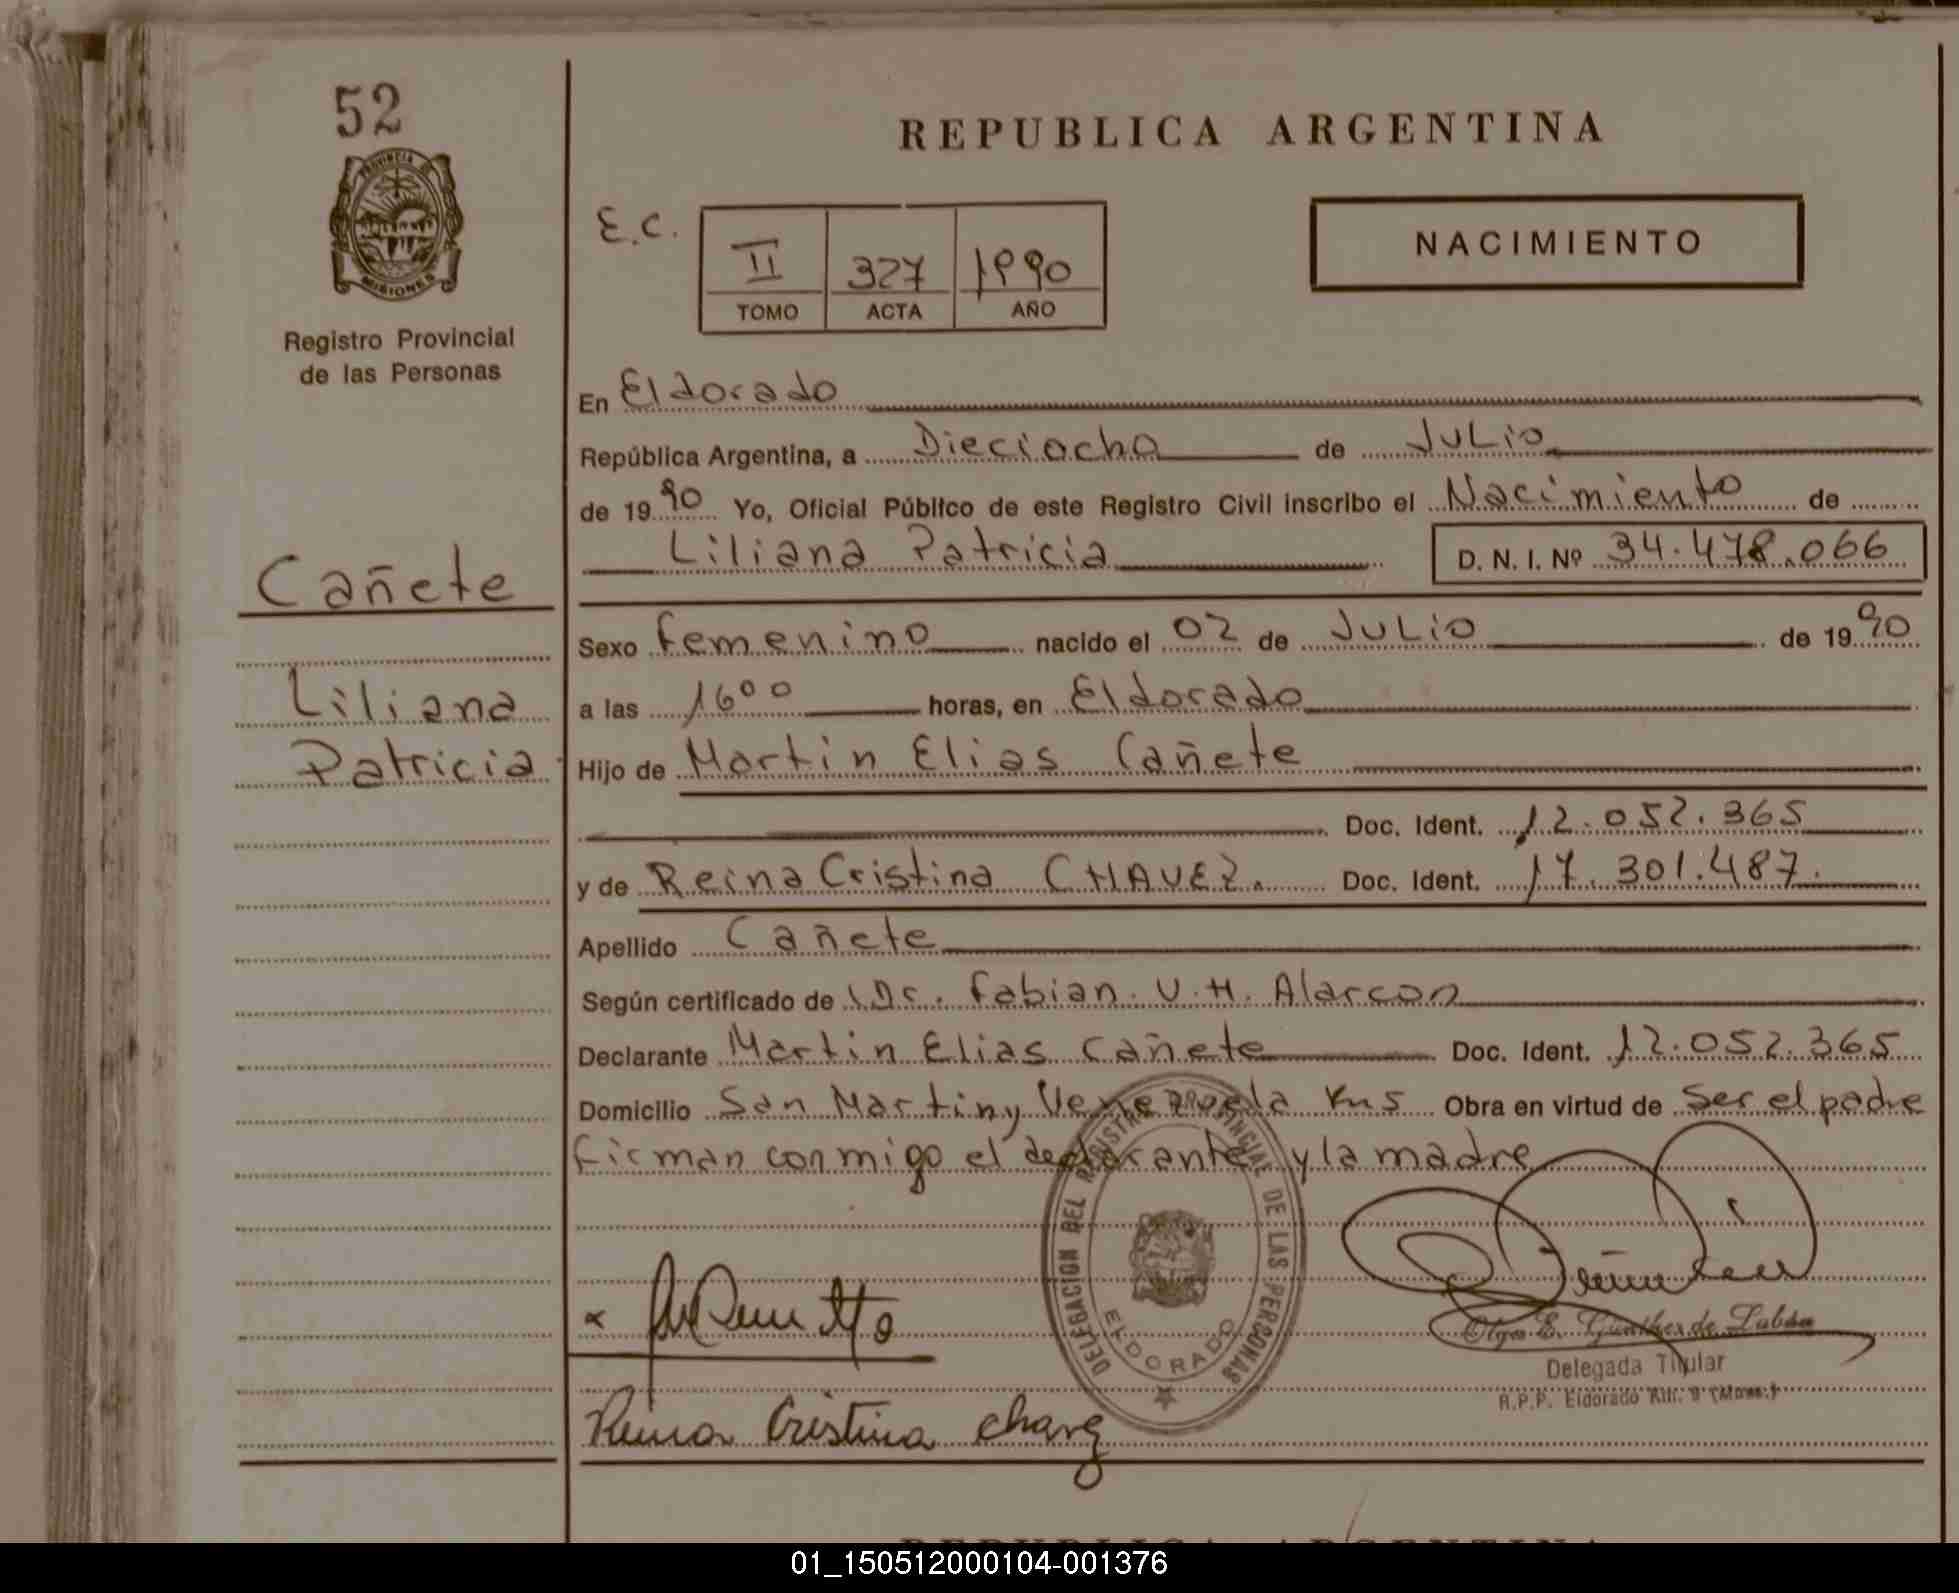 52
PROVINCIA DE
MISIONES
Registro Provincial
de las Personas
Cañete
Liliana
Patricia
REPUBLICA ARGENTINA
E.C.
II 327 1990
TOMO ACTA AÑO
NACIMIENTO
En Eldorado
República Argentina, a Dieciocho de Julio
de 1990 Yo, Oficial Público de este Registro Civil inscribo el Nacimiento de
Liliana Patricia D. N. I. Nº 34.478.066
Sexo Femenino nacido el 02 de Julio de 1990
a las 16⁰⁰ horas, en Eldorado
Hijo de Martin Elias Cañete
Doc. Ident. 12.052.365
y de Reina Cristina CHAVEZ. Doc. Ident. 17.301.487.
Apellido Cañete
Según certificado de Dr. Fabian V.H. Alarcon
Declarante Martin Elias Cañete Doc. Ident. 12.052.365
Domicilio San Martin y Km 5 Obra en virtud de Ser el padre
firman conmigo el declarante y la madre
DELEGACION DEL REGISTRO PROVINCIAL DE LAS PERSONAS
ELDORADO
Olga E. Günther de Labán
Delegada Titular
R.P.P. Eldorado Km. 9 (Mnes.)
Reina Cristina Chavez
REPUBLICA ARGENTINA
01_150512000104-001376